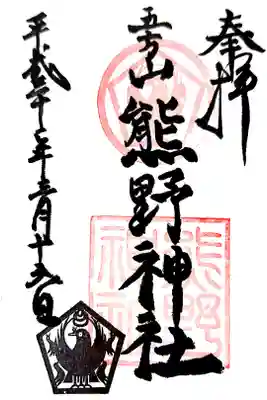 奉拝
五方山
熊野神社
平成 年 月十五日
熊野神社